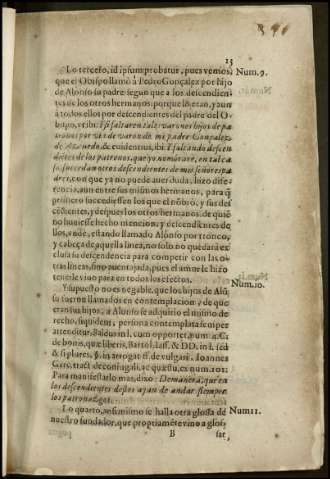 13
Lo tercero, id ipsum probatur, pues vemos, Num. 9.
que el Obispo llamò à Pedro Gonçalez por hijo
de Alonso su padre, segun que a los descendien-
tes de los otros hermanos, porque lo eran, y aun
à todos ellos por descendientes del padre del O-
bispo, et ibi: I si faltaren tales varones hijos de va-
rones por via de varon de mi padre Gonçalez
de Azeuedo, & euidentius, ibi: I faltando descen-
dientes de los patrones, que yo nombrare, en tal ca-
so, sucedan otros descendientes de mis señores pa-
dres, con que ya no puede auer duda, hizo dife-
rencia, aun entre sus mismos hermanos, para q̃
primero sucediessen los que el nõbrò, y sus des
cẽdientes, y despues los otros hermanos, de quiẽ
no huuiesse hecho mencion, y descendientes de
ellos, estando llamado Alonso por tronco,
y cabeça de aquella linea, no solo no quedarà ex
clusa su descendencia para competir con las o-
tras lineas, sino auentajada, pues el amor le hizo
tenerle viuo para en todos los efectos.
Y supuesto no es negable, que los hijos de Alõ Num. 10.
so fueron llamados en contemplacion, y de que
eran sus hijos, a Alonso se adquirio el mismo de
recho, siquidem, persona contemplata semper
attenditur, Baldus in l. cum oportet, num. 2. C.
de bonis, quæ liberis, Bartol. Iass. & DD. in l. sed
& si plures, §. in arrogat. ff. de vulgari, Ioannes
Garc. tract. de coniugali, acquæstu, ex num. 101.
Para manifestarlo mas, dixo: De manera, que en
los descendientes destos ayan de andar siempre
los patronazgos.
Lo quarto, assimismo se halla otra glossa de Num 11.
nuestro fundador, que propriamẽte vino a glos-
B sar